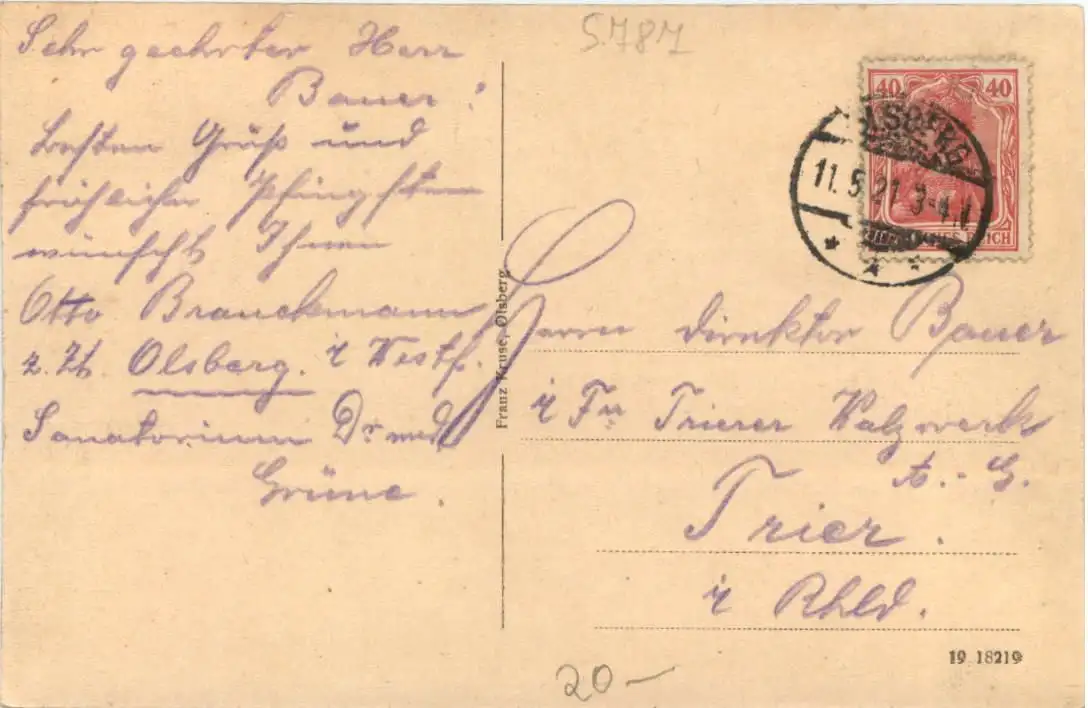 Sehr geehrter Herr
Bauer!
Besten Gruß und
fröhliche Pfingsten
wünscht Ihnen
Otto Brauckmann
z. Zt. Olsberg. i Westf.
Sanatorium Dr med
Grüne.
Franz Kruse, Olsberg.
S.787
40 40
OLSBERG
11.5.21. 3-4.N.
REICH
Herrn Direktor Bauer
i Fa Trierer Walzwerk
A.-G.
Trier.
i Rhld.
19 18219
20-